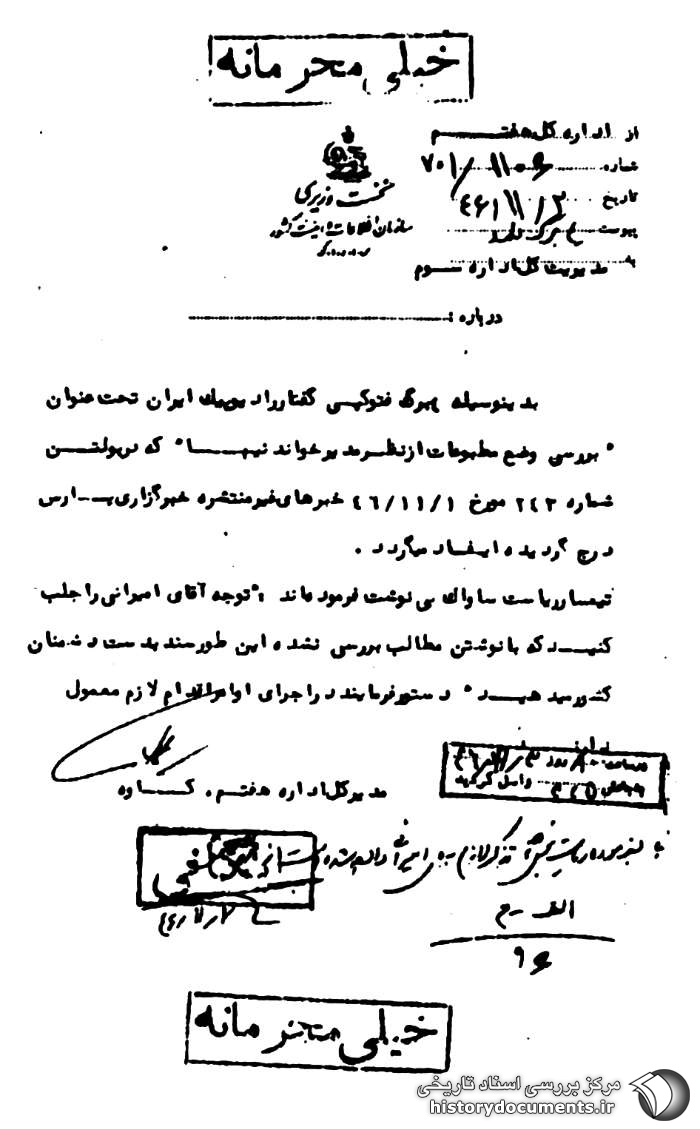 خیلی محرمانه
از اداره کل هفتم
شماره ۷۰۱/۱۱۰۶
تاریخ ۴۶/۱۱/۲
پیوست برگ دارد
به مدیریت کل اداره سوم
نخست وزیری
سازمان اطلاعات و امنیت کشور
س.ا.و.ا.ک
درباره :
بدینوسیله برگ فتوکپی گفتار رادیو پیک ایران تحت عنوان
" بررسی وضع مطبوعات از نظر مدیر خواندنیها " که در بولتن
شماره ۲۴۲ مورخ ۴۶/۱۱/۱ خبرهای غیر منتشره خبرگزاری پارس
درج گردیده ایفاد میگردد .
تیمسار ریاست ساواک پی نوشت فرموده اند : "توجه آقای امیرانی را جلب
کنید که با نوشتن مطالب بررسی نشده این طور سند بدست دشمنان
کشور میدهید " دستور فرمایند در اجرای اوامر اقدام لازم معمول
دارند
مدیر کل اداره هفتم . کاوه
در ساعت روز
به بخش واصل گردید
الف - ح
۹۶
خیلی محرمانه
مرکز بررسی اسناد تاریخی
historydocuments.ir